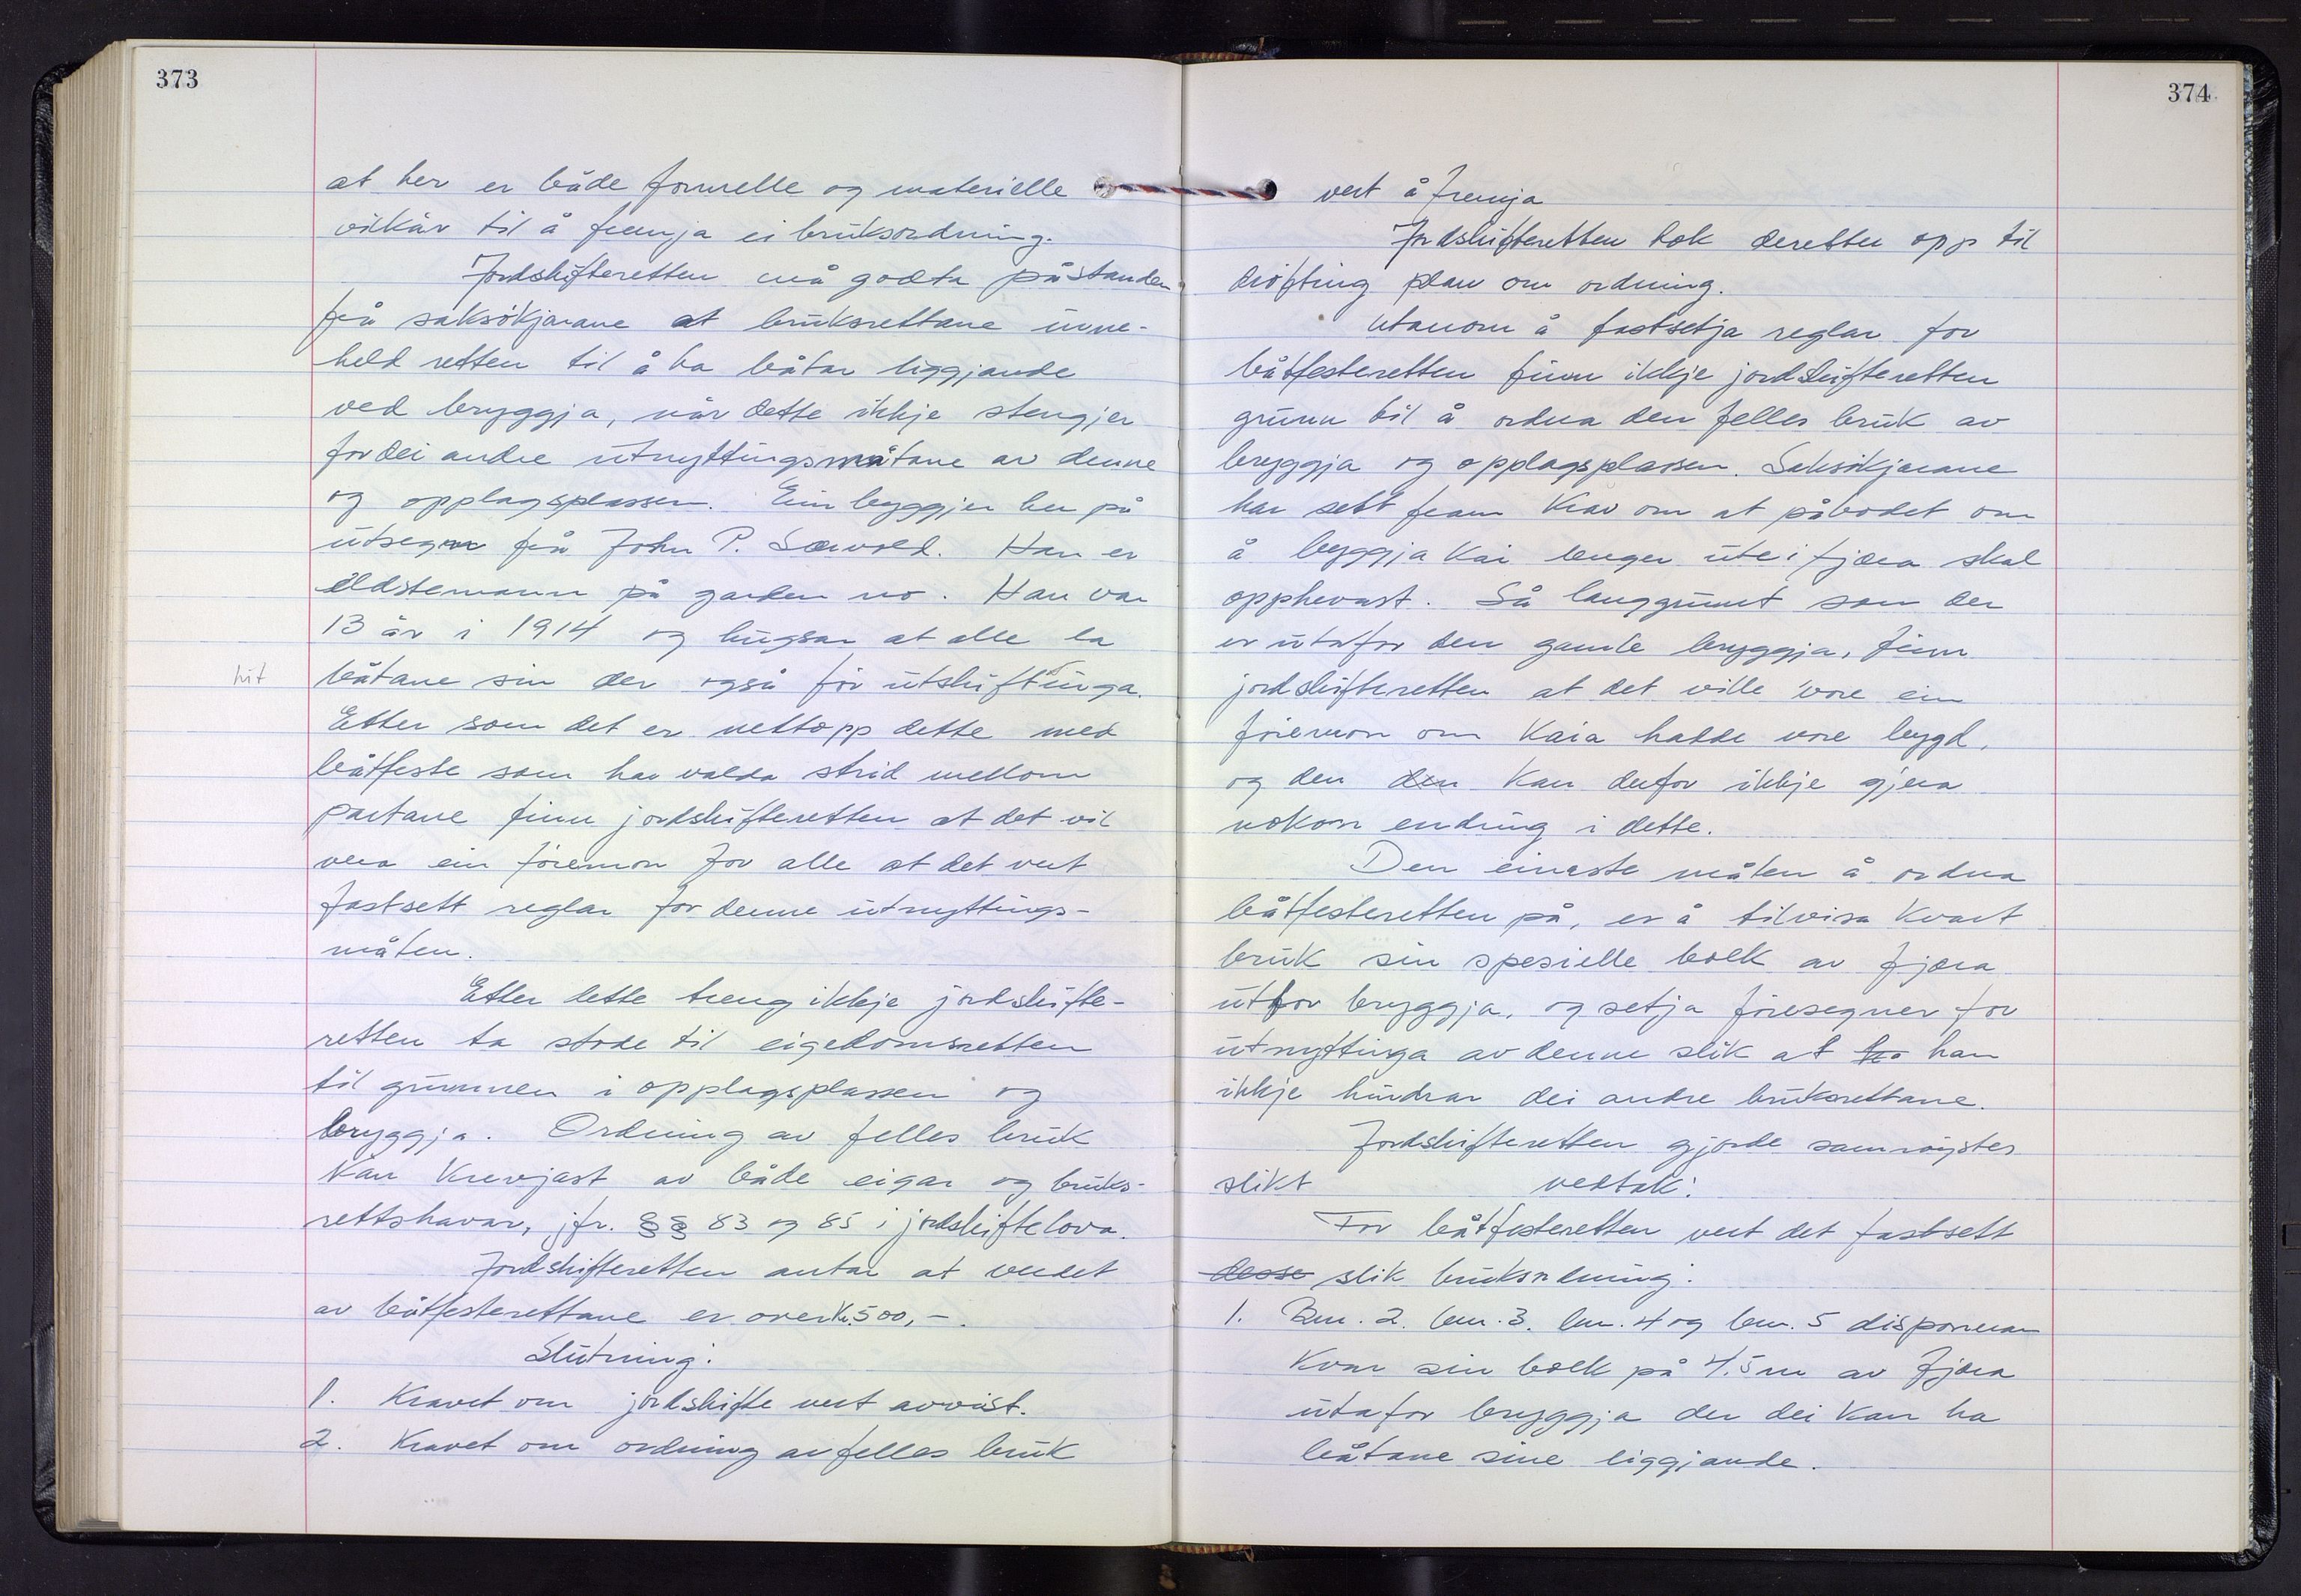 373
at her er både formelle og materielle
vilkår til å fremja ei bruksordning.
Jordskifteretten må godta påstanden
frå saksøkjarane at bruksrettane inne-
held retten til å ha båtar liggjande
ved bryggja, når dette ikkje stengjer
for dei andre utnyttingsmåtane av denne
og opplagsplassen. Ein byggjer her på
utsegn frå John P. Sævold. Han er
eldstemann på garden no. Han var
13 år i 1914 og hugsar at alle la
hit
båtane sin der også før utskiftinga.
Etter som det er nettopp dette med
båtfeste som har valda strid mellom
partane finn jordskifteretten at det vil
vera ein føremon for alle at det vert
fastsett reglar for denne utnyttings-
måten.
Etter dette treng ikkje jordskifte-
retten ta stode til eigedomsretten
til grunnen i opplagsplassen og
bryggja. Ordning av felles bruk
kan krevjast av både eigar og bruks-
rettshavar, jfr. §§ 83 og 85 i jordskiftelova.
Jordskifteretten antar at verdet
av båtfesterettane er over kr. 500,-.
Slutning:
1. Kravet om jordskifte vert avvist.
2. Kravet om ordning av felles bruk
374
vert å fremja
Jordskifteretten tok deretter opp til
drøfting plan om ordning.
Utanom å fastsetja reglar for
båtfesteretten finn ikkje jordskifteretten
grunn til å ordna den felles bruk av
bryggja og opplagsplassen. Saksøkjarane
har sett fram krav om at påbodet om
å byggja kai lenger ute i fjæra skal
opphevast. Så langgrunt som der
er utafor den gamle bryggja, finn
jordskifteretten at det ville vore ein
føremon om kaia hadde vore bygd,
og den den kan derfor ikkje gjera
nokon endring i dette.
Den einaste måten å ordna
båtfesteretten på, er å tilvisa kvart
bruk sin spesielle bolk av fjæra
utfor bryggja, og setja føresegner for
utnyttinga av denne slik at ho han
ikkje hindrar dei andre bruksrettane.
Jordskifteretten gjorde samrøystes
slikt vedtak:
For båtfesteretten vert det fastsett
desse slik bruksordning:
1. Bnr. 2. bnr. 3. bnr. 4 og bnr. 5 disponerar
kvar sin bolk på 4.5 m av fjæra
utafor bryggja der dei kan ha
båtane sine liggjande.